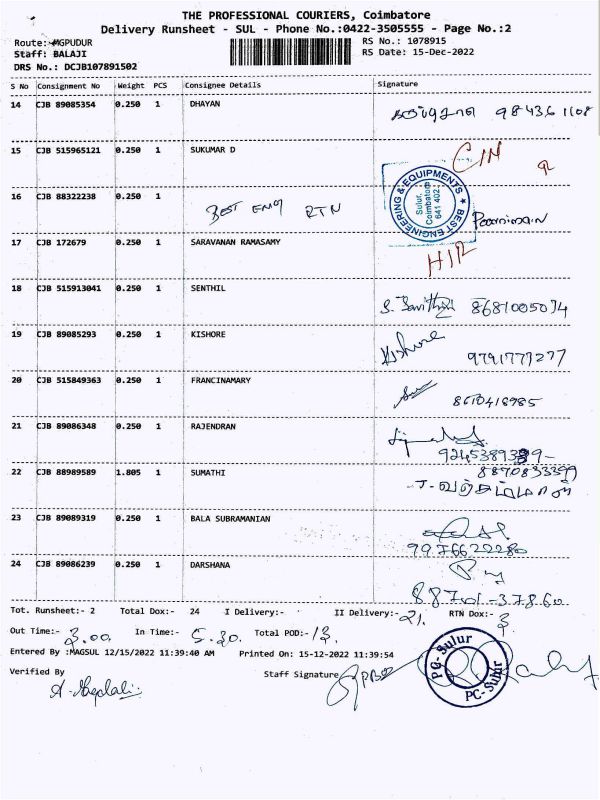 THE PROFESSIONAL COURIERS, Coimbatore
Delivery Runsheet - SUL - Phone No.:0422-3505555 - Page No.:2
Route: MGPUDUR
Staff: BALAJI
DRS No.: DCJB107891502
RS No.: 1078915
RS Date: 15-Dec-2022
S No Consignment No Weight PCS Consignee Details Signature
14 CJB 89085354 0.250 1 DHAYAN
15 CJB 515965121 0.250 1 SUKUMAR D
16 CJB 88322238 0.250 1 BEST ENG RTN
BEST ENGINEERING & EQUIPMENTS
Sulur,
Coimbatore
641 402
17 CJB 172679 0.250 1 SARAVANAN RAMASAMY
18 CJB 515913041 0.250 1 SENTHIL S. Savithri 8681005074
19 CJB 89085293 0.250 1 KISHORE Kishore 9791777277
20 CJB 515849363 0.250 1 FRANCINAMARY 8610418985
21 CJB 89086348 0.250 1 RAJENDRAN
22 CJB 88989589 1.805 1 SUMATHI 8870833399
23 CJB 89089319 0.250 1 BALA SUBRAMANIAN 9976622280
24 CJB 89086239 0.250 1 DARSHANA 88701-37860
Tot. Runsheet:- 2 Total Dox:- 24 I Delivery:- II Delivery:- 21. RTN Dox:- 3
Out Time:- 3.00. In Time:- 5.30. Total POD:- 13.
Entered By :MAGSUL 12/15/2022 11:39:40 AM Printed On: 15-12-2022 11:39:54
Verified By Staff Signature
PC-Sulur
PC-Sulur